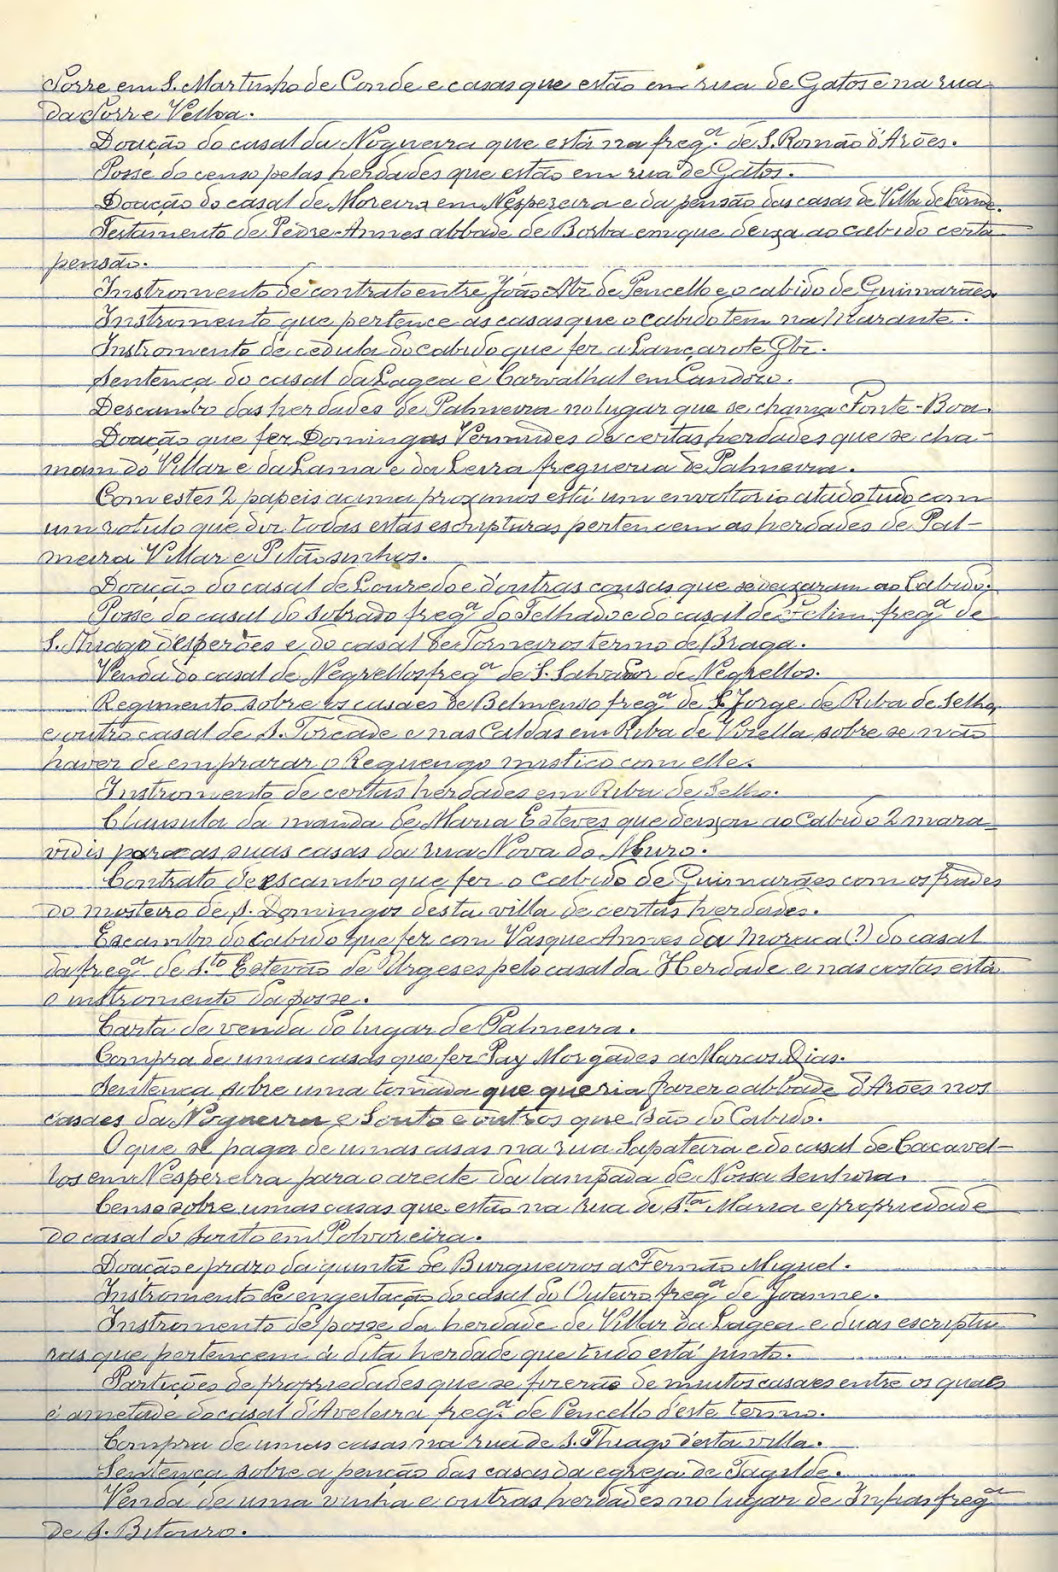 Torre em S. Martinho de Conde e casas que estão em rua de Gatos e na rua
da Torre Velha.
Doação do casal da Nogueira que está na freg.ª de S. Romão d'Arões.
Posse do censo pelas herdades que estão em rua de Gatos.
Doação do casal de Moreira em Nespereira e da pensão das casas de Villa de Conde.
Testamento de Pedre Annes abbade de Borba em que deixa ao cabido certa
pensão.
Instromento de contrato entre João Alz. de Pencello e o cabido de Guimarães.
Instromento que pertence as casas que o cabido tem na Murante.
Instromento de cedula do cabido que fez a Lançarote Glz.
Sentença do casal da Lagea e Carvalhal em Candozo.
Descambo das herdades de Palmeira no lugar que se chama Fonte-Boa.
Doação que fez Domingas Vermudes de certas herdades que se cha-
mam do Villar e da Lama e da Leira freguezia de Palmeira.
Com estes 2 papeis acima proximos está um envoltorio atado tudo com
um rotulo que diz todas estas escripturas pertencem as herdades de Pal-
meira Villar e Pitãosinhos.
Doação do casal de Louredo e d'outras cousas que se deixaram ao Cabido.
Posse do casal do Sobrado freg.ª do Telhado e do casal de Felim freg.ª de
S. Thiago d'esperões e do casal de Torneiros termo de Braga.
Venda do casal de Negrellos freg.ª de S. Salvador de Negrellos.
Regimento sobre os casaes de Belmenso freg.ª de S. Jorge de Riba de Selho,
e outro casal de S. Torcade e nas Caldas em Riba de Vizella sobre se não
haver de emprazar o Reguengo mistico com elle.
Instromento de certas herdades em Riba de Selho.
Clausula da manda de Maria Esteves que deixou ao Cabido 2 mara-
vidis para as suas casas da rua Nova do Muro.
Contrato de escambo que fez o cabido de Guimarães com os frades
do mosteiro de S. Domingos desta villa de certas herdades.
Escambo do Cabido que fez com Vasque Annes da Moraca(?) do casal
da freg.ª de S.to Estevão de Urgeses pelo casal da Herdade e nas costas está
o instromento da posse.
Carta de venda do lugar de Palmeira.
Compra de umas casas que fez Ruy Morgades a Marcos Dias.
Sentença sobre uma tomada que queria fazer o abbade d'Arões nos
casaes da Nogueira e Souto e outros que são do Cabido.
O que se paga de umas casas na rua Sapateira e do casal de Cacavel-
los em Nespereira para o azeite da lampada de Nossa Senhora.
Censo sobre umas casas que estão na rua de S.ta Maria e propriedade
do casal do Souto em Polvoreira.
Doação e prazo da quintã de Burgueiros a Fernão Miguel.
Instromento de engeitação do casal do Outeiro freg.ª de Joanne.
Instromento de posse da herdade de Villar da Lagea e duas escriptu-
ras que pertencem á dita herdade que tudo está junto.
Partições de propriedades que se fizerão de muitos casaes entre os quaes
é ametade do casal d'Aveleira freg.ª de Pencello d'este termo.
Compra de umas casas na rua de S. Thiago d'esta villa.
Sentença sobre a penção das casas da egreja de Tagilde.
Venda de uma vinha e outras herdades no lugar de Infias freg.ª
de S. Bitouro.